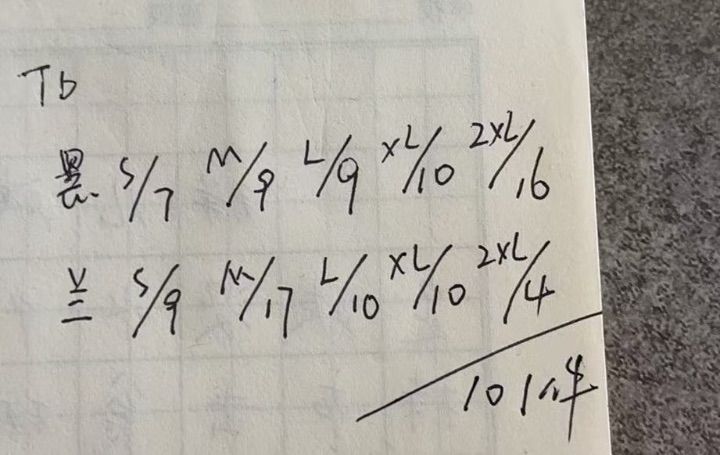 Tb
黑 S/7 M/9 L/9 XL/10 2XL/16
兰 S/9 M/17 L/10 XL/10 2XL/4
101件